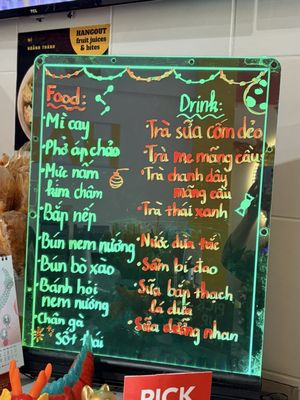 TCL
HANGOUT
fruit juices
& bites
Food:
Mì cay
Phở áp chảo
Mực nấm
kim châm
Bắp nếp
Bún nem nướng
Bún bò xào
Bánh hỏi
nem nướng
Chân gà
sốt thái
Drink:
Trà sữa cốm dẻo
Trà me mãng cầu
Trà chanh dây
mãng cầu
Trà thái xanh
Nước dừa tắc
Sâm bí đao
Sữa bắp thạch
lá dứa
Sữa dưỡng nhan
PICK